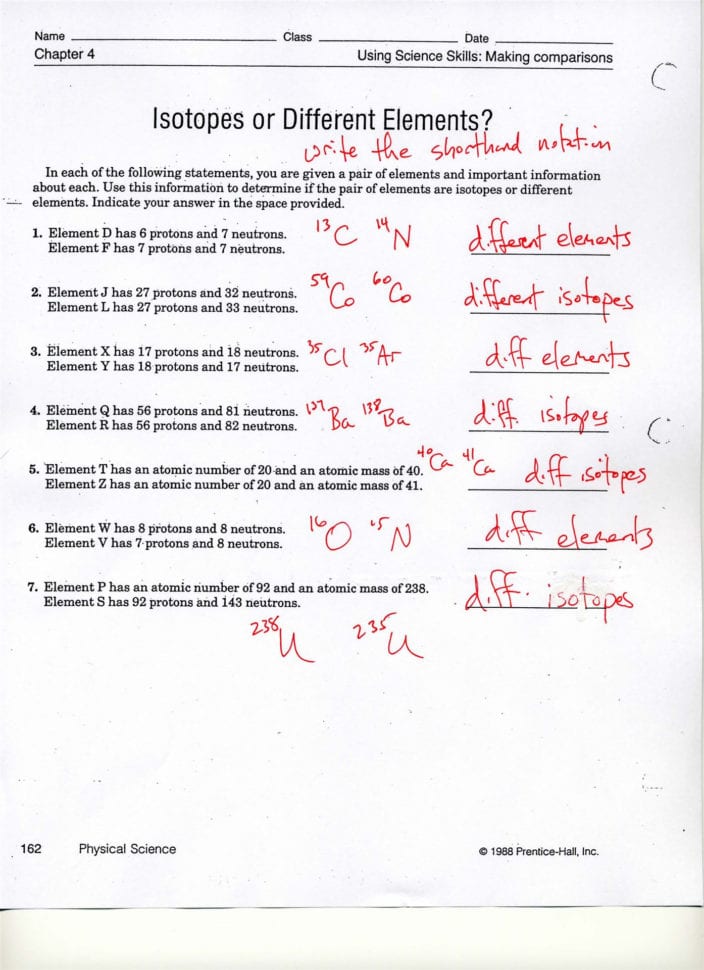 Name ______ Class ______ Date ______
Chapter 4 Using Science Skills: Making comparisons
Isotopes or Different Elements?
write the shorthand notation
In each of the following statements, you are given a pair of elements and important information
about each. Use this information to determine if the pair of elements are isotopes or different
elements. Indicate your answer in the space provided.
1. Element D has 6 protons and 7 neutrons. ¹³C ¹⁴N different elements
Element F has 7 protons and 7 neutrons.
2. Element J has 27 protons and 32 neutrons. ⁵⁹Co ⁶⁰Co different isotopes
Element L has 27 protons and 33 neutrons.
3. Element X has 17 protons and 18 neutrons. ³⁵Cl ³⁵Ar diff elements
Element Y has 18 protons and 17 neutrons.
4. Element Q has 56 protons and 81 neutrons. ¹³⁷Ba ¹³⁸Ba diff. isotopes
Element R has 56 protons and 82 neutrons.
5. Element T has an atomic number of 20 and an atomic mass of 40. ⁴⁰Ca ⁴¹Ca diff isotopes
Element Z has an atomic number of 20 and an atomic mass of 41.
6. Element W has 8 protons and 8 neutrons. ¹⁶O ¹⁵N diff elements
Element V has 7 protons and 8 neutrons.
7. Element P has an atomic number of 92 and an atomic mass of 238. diff. isotopes
Element S has 92 protons and 143 neutrons.
²³⁸U ²³⁵U
162 Physical Science © 1988 Prentice-Hall, Inc.